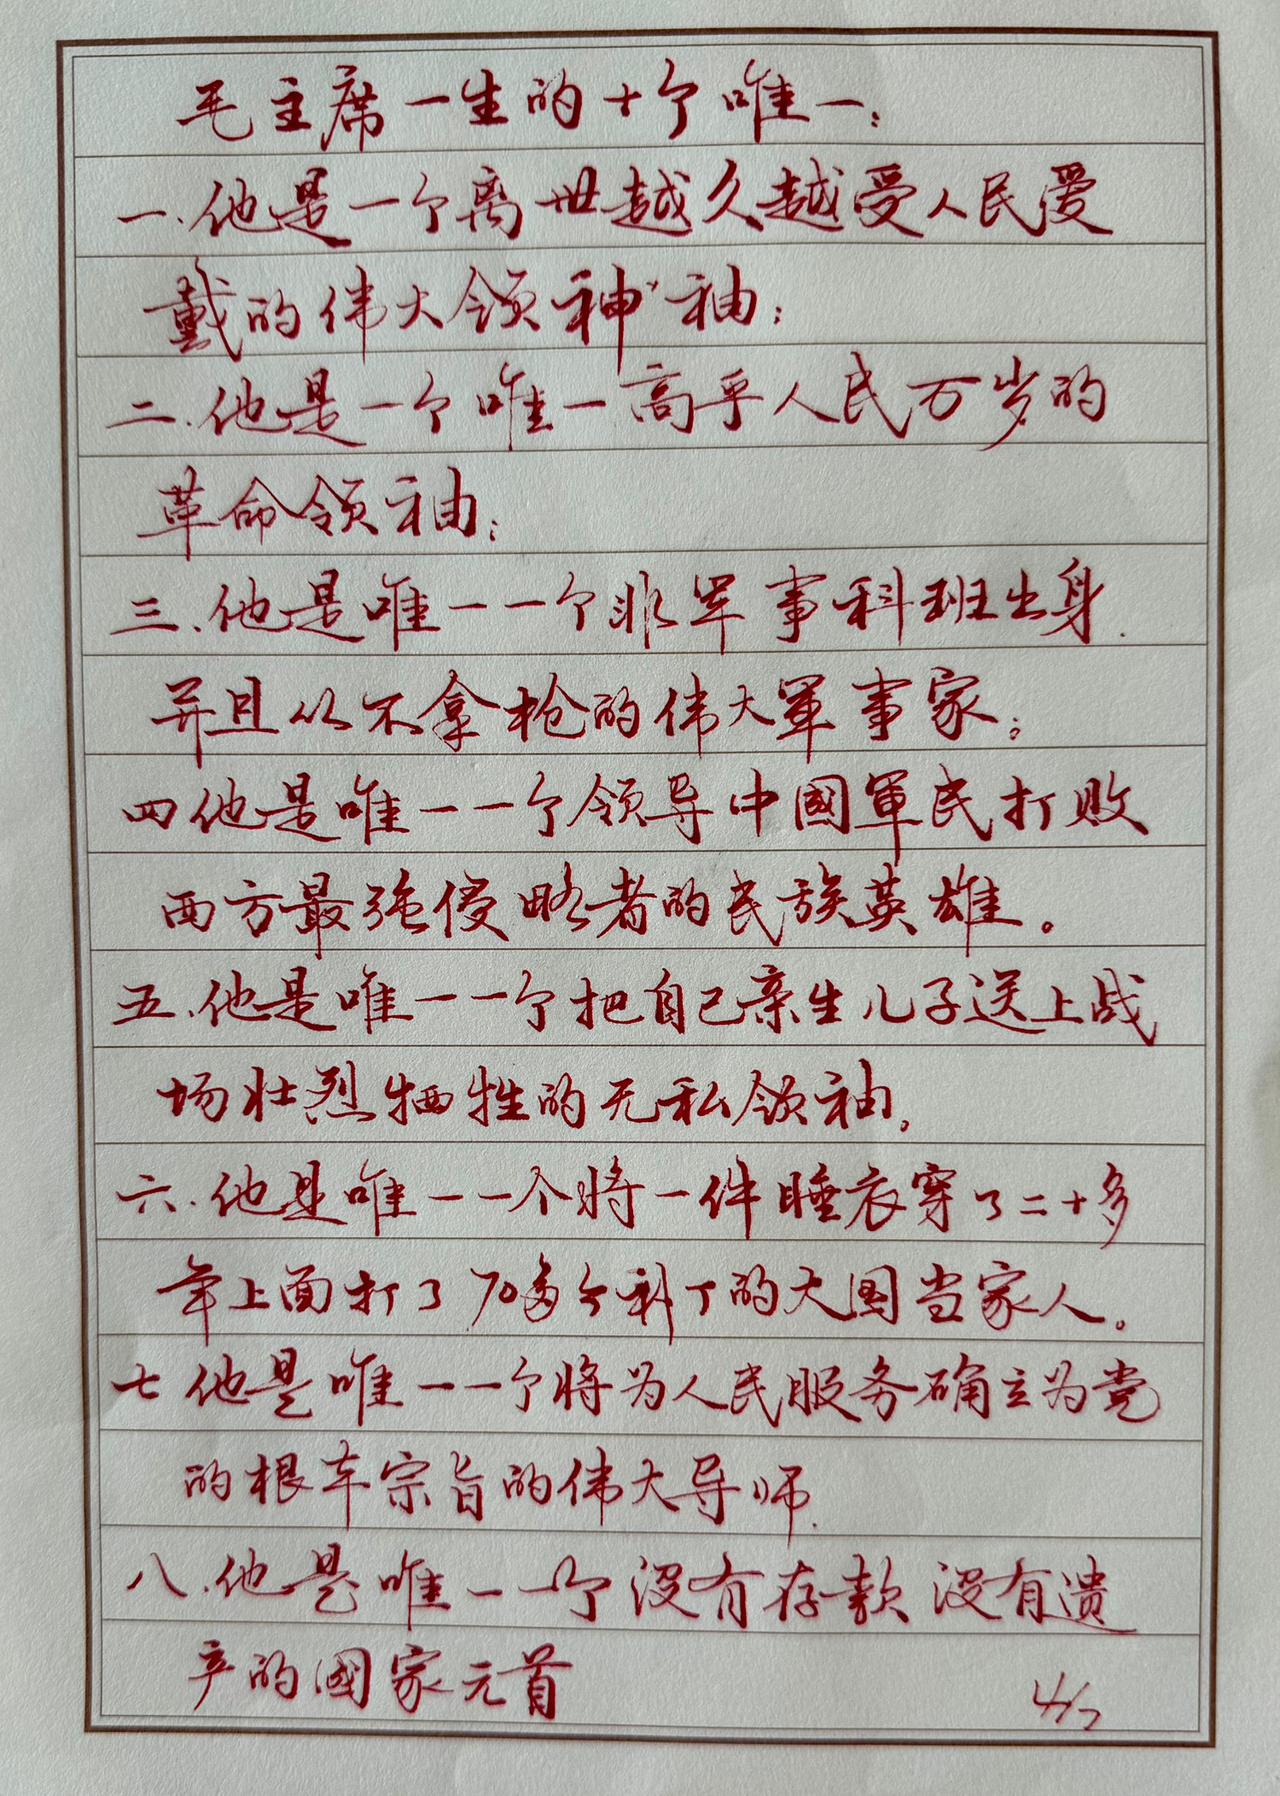 毛主席一生的十个唯一:
一.他是一个离世越久越受人民爱
戴的伟大领神、袖;
二.他是一个唯一高乎人民万岁的
革命领袖;
三.他是唯一一个非军事科班出身.
并且从不拿枪的伟大軍事家;
四他是唯一一个领导中國軍民打败
西方最强侵略者的民族英雄。
五.他是唯一一个把自己亲生儿子送上战
场壮烈牺牲的无私领袖.
六.他是唯一一个将一件睡衣穿了二十多
年上面打了70多个补丁的大国当家人。
七他是唯一一个将为人民服务确立为党
的根本宗旨的伟大导师.
八.他是唯一一个没有存款没有遗
产的國家元首